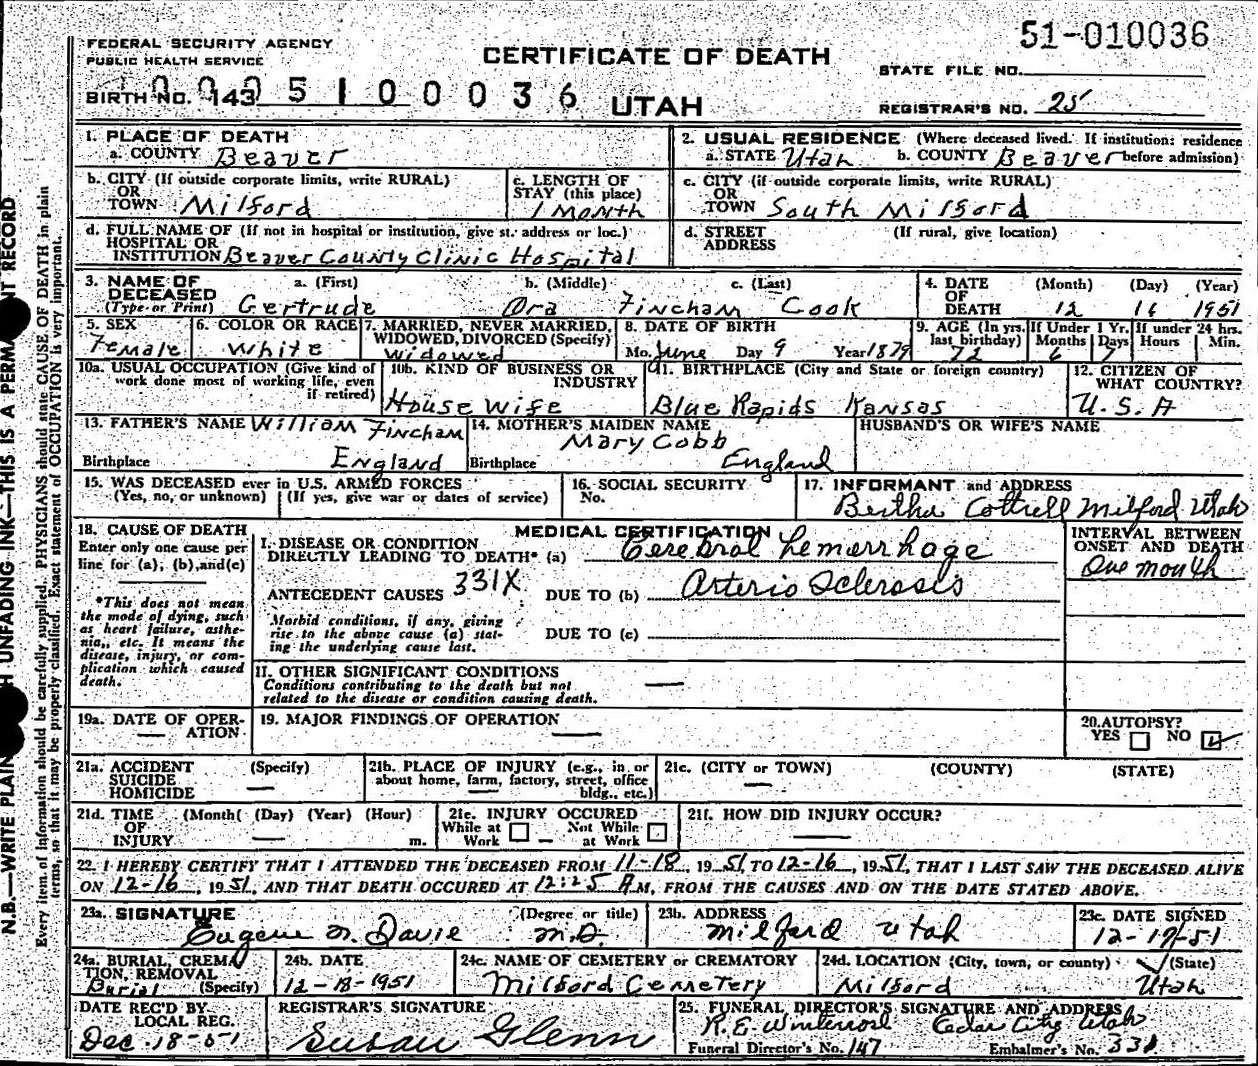 51-010036
FEDERAL SECURITY AGENCY
PUBLIC HEALTH SERVICE
CERTIFICATE OF DEATH
STATE FILE NO.
BIRTH NO. 143
5 1 0 0 0 3 6
UTAH
REGISTRAR'S NO. 25
1. PLACE OF DEATH
a. COUNTY Beaver
2. USUAL RESIDENCE (Where deceased lived. If institution: residence
a. STATE Utah b. COUNTY Beaver before admission)
b. CITY (If outside corporate limits, write RURAL)
OR
TOWN Milford
c. LENGTH OF
STAY (this place)
1 Month
c. CITY (if outside corporate limits, write RURAL)
OR
TOWN South Milford
d. FULL NAME OF (If not in hospital or institution, give st. address or loc.)
HOSPITAL OR
INSTITUTION Beaver County Clinic Hospital
d. STREET (If rural, give location)
ADDRESS
3. NAME OF a. (First) b. (Middle) c. (Last)
DECEASED
(Type or Print) Gertrude Ora Fincham Cook
4. DATE (Month) (Day) (Year)
OF
DEATH 12 16 1951
5. SEX
Female
6. COLOR OR RACE
White
7. MARRIED, NEVER MARRIED,
WIDOWED, DIVORCED (Specify)
Widowed
8. DATE OF BIRTH
Mo. June Day 9 Year 1879
9. AGE (In yrs. last birthday)
72
If Under 1 Yr.
Months Days
6 7
If under 24 hrs.
Hours Min.
10a. USUAL OCCUPATION (Give kind of
work done most of working life, even
if retired)
10b. KIND OF BUSINESS OR
INDUSTRY
House Wife
11. BIRTHPLACE (City and State or foreign country)
Blue Rapids Kansas
12. CITIZEN OF
WHAT COUNTRY?
U.S.A
13. FATHER'S NAME William Fincham
Birthplace England
14. MOTHER'S MAIDEN NAME
Mary Cobb
Birthplace England
HUSBAND'S OR WIFE'S NAME
15. WAS DECEASED ever in U.S. ARMED FORCES
(Yes, no, or unknown) (If yes, give war or dates of service)
16. SOCIAL SECURITY
No.
17. INFORMANT and ADDRESS
Bertha Cottrell Milford Utah
18. CAUSE OF DEATH
Enter only one cause per
line for (a), (b), and (c)
*This does not mean
the mode of dying, such
as heart failure, asthe-
nia,, etc. It means the
disease, injury, or com-
plication which caused
death.
MEDICAL CERTIFICATION
I. DISEASE OR CONDITION
DIRECTLY LEADING TO DEATH* (a) Cerebral hemorrhage
ANTECEDENT CAUSES 331X DUE TO (b) Arterio Sclerosis
Morbid conditions, if any, giving
rise to the above cause (a) stat-
ing the underlying cause last.
DUE TO (c)
INTERVAL BETWEEN
ONSET AND DEATH
One month
II. OTHER SIGNIFICANT CONDITIONS
Conditions contributing to the death but not
related to the disease or condition causing death.
19a. DATE OF OPER-
ATION
19. MAJOR FINDINGS OF OPERATION
20. AUTOPSY?
YES NO
21a. ACCIDENT (Specify)
SUICIDE
HOMICIDE
21b. PLACE OF INJURY (e.g., in or
about home, farm, factory, street, office
bldg., etc.)
21c. (CITY or TOWN) (COUNTY) (STATE)
21d. TIME (Month( (Day) (Year) (Hour)
OF
INJURY m.
21e. INJURY OCCURED
While at Not While
Work at Work
21f. HOW DID INJURY OCCUR?
22. I HEREBY CERTIFY THAT I ATTENDED THE DECEASED FROM 11-18, 1951, TO 12-16, 1951, THAT I LAST SAW THE DECEASED ALIVE
ON 12-16, 1951, AND THAT DEATH OCCURED AT 12:25 A M., FROM THE CAUSES AND ON THE DATE STATED ABOVE.
23a. SIGNATURE (Degree or title)
Eugene Davie M.D.
23b. ADDRESS
Milford Utah
23c. DATE SIGNED
12-17-51
24a. BURIAL, CREMA
TION, REMOVAL
Burial (Specify)
24b. DATE
12-18-1951
24c. NAME OF CEMETERY or CREMATORY
Milford Cemetery
24d. LOCATION (City, town, or county) (State)
Milford Utah
DATE REC'D BY
LOCAL REG.
Dec. 18-51
REGISTRAR'S SIGNATURE
Susan Glenn
25. FUNERAL DIRECTOR'S SIGNATURE AND ADDRESS
R.E. Cedar City Utah
Funeral Director's No. 147 Embalmer's No. 331
N.B.—WRITE PLAIN H UNFADING INK—THIS IS A PERMA NT RECORD
Every item of information should be carefully supplied. PHYSICIANS should state CAUSE OF DEATH in plain
terms, so that it may be properly classified. Exact statement of OCCUPATION is very important.